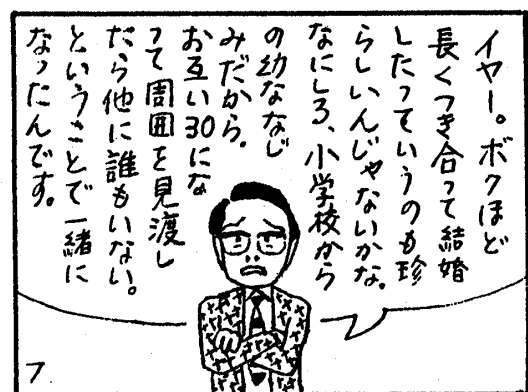 イヤー。ボクほど
長くつき合って結婚
したっていうのも珍
らしいんじゃないかな。
なにしろ、小学校から
の幼ななじ
みだから。
お互い30にな
って周囲を見渡し
たら他に誰もいない。
ということで一緒に
なったんです。